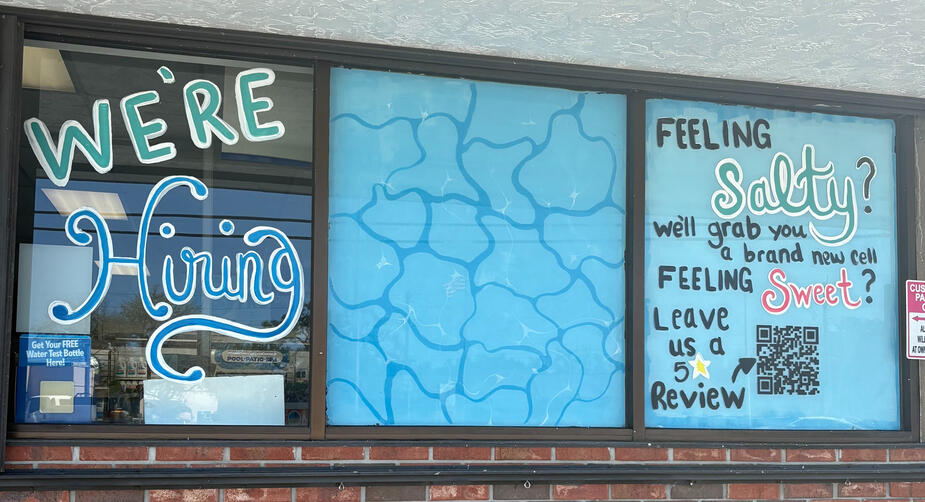 WE'RE
Hiring
Get Your FREE
Water Test Bottle
Here!
POOL•PATIO•SPA
FEELING
Salty?
we'll grab you
a brand new cell
FEELING
Sweet?
Leave
us a
5
Review
CUS
PA
AL
WIL
AT OWN